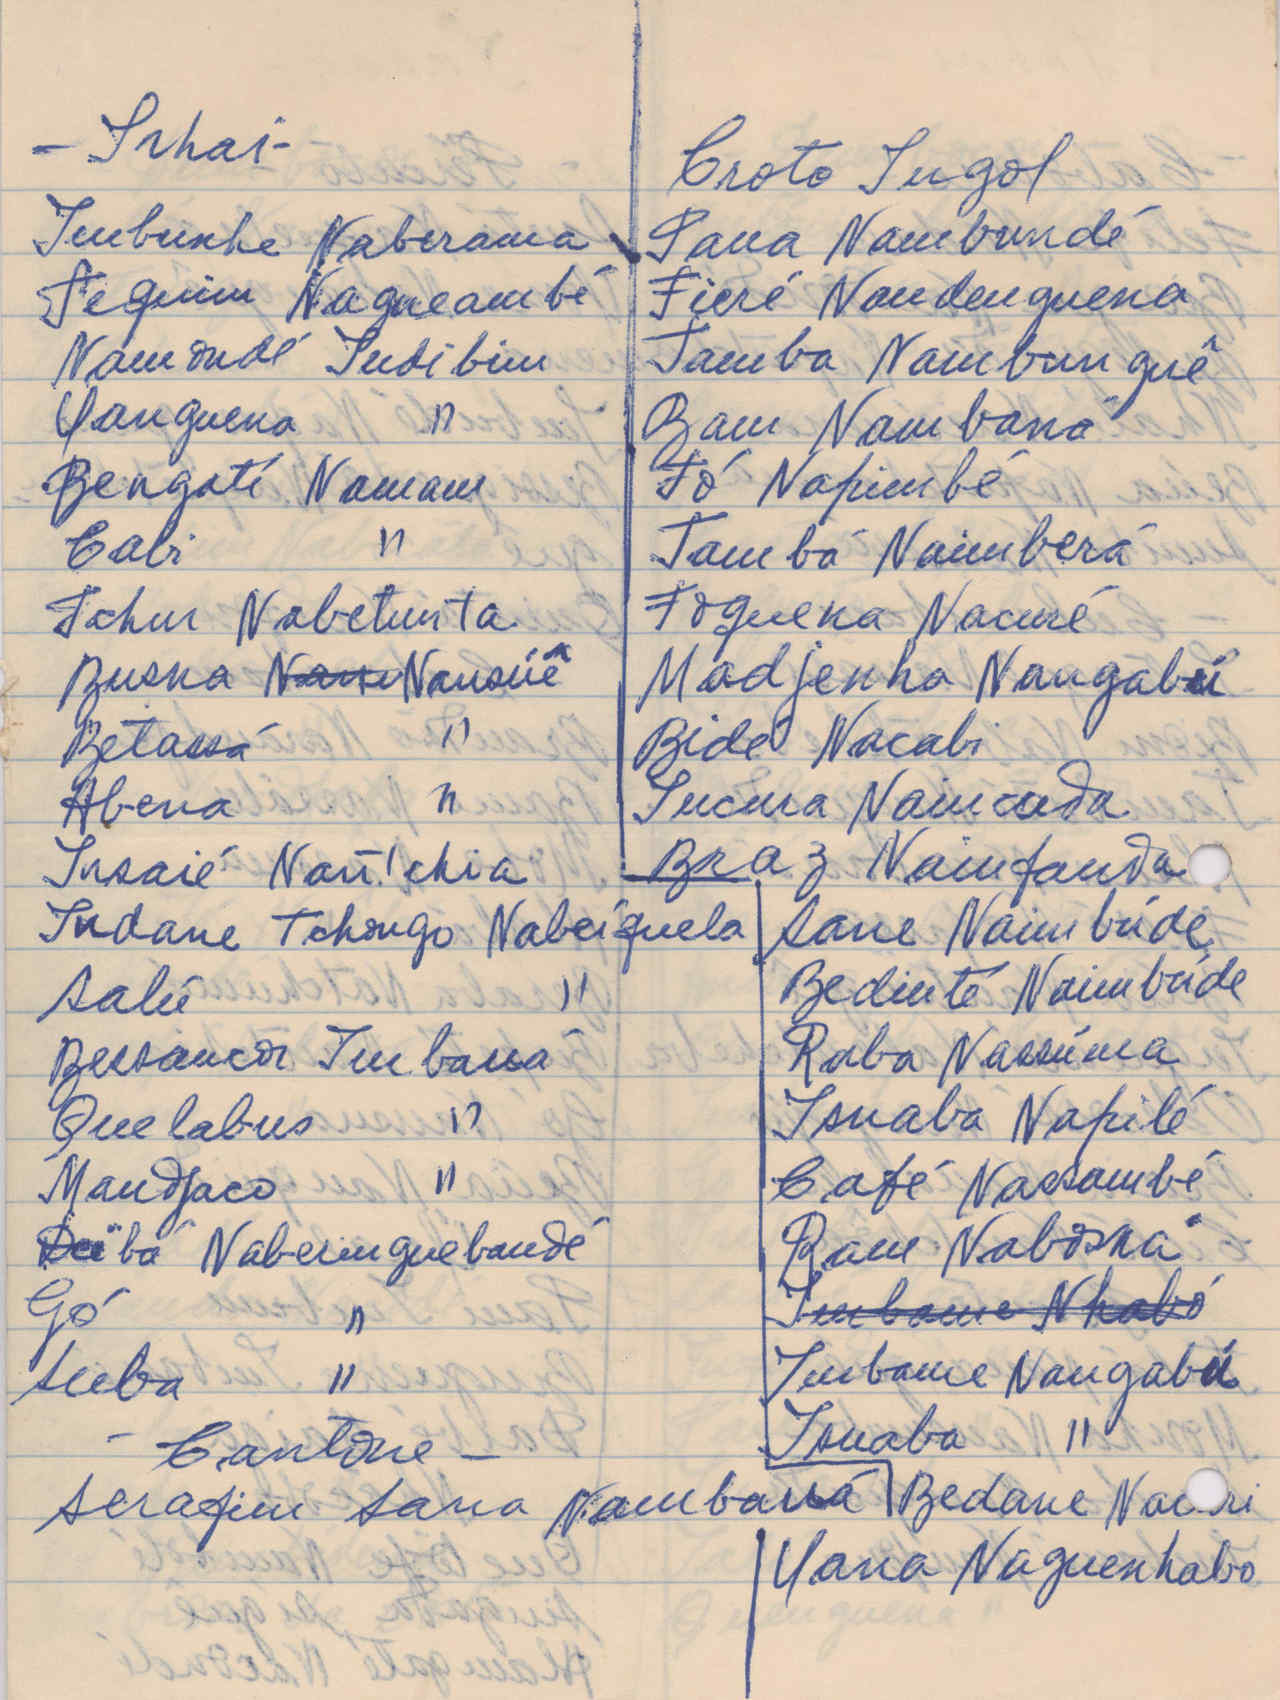 - Inhai -
Imbunhe Naberama
Fequim Nagueambé
Namondé Indibim
Yanguena "
Bengati Namam
Cabi "
Tchur Nabetunta
Busna Nansúe
Betassá "
Abena "
Insaié Nan'tchia
Indane Tchongo Nabeiguela
Salú "
Bessancor Imbaná
Quelabus "
Mandjaco "
bá Naberinguebandé
Gó "
Suba "
- Cantone -
Serafim Sana Nambaná
Croto Ingol
Pana Nambundé
Fieré Nandenguena
Tamba Nambunguê
Bam Nambaná
Fó Napimbé
Tambá Naimberá
Foguena Nacuré
Madjenho Nangabú
Bidé Nacabi
Incura Naincuda
Braz Nainfanda
Sane Naimbúde
Bedinté Naimbúde
Raba Nassúma
Isnaba Napilé
Café Nassambé
Bam Naboská
Imbame Nhabó
Imbame Nangabú
Isnaba "
Bedane
Yana Naguenhabo